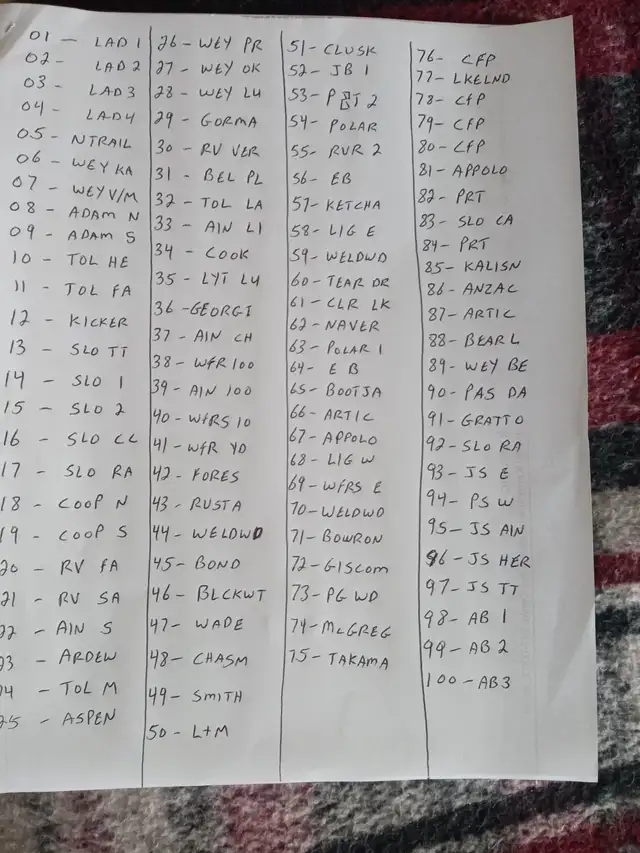 01 - LAD 1
02 - LAD 2
03 - LAD 3
04 - LAD 4
05 - NTRAIL
06 - WEY KA
07 - WEY V/M
08 - ADAM N
09 - ADAM S
10 - TOL HE
11 - TOL FA
12 - KICKER
13 - SLO TT
14 - SLO 1
15 - SLO 2
16 - SLO CL
17 - SLO RA
18 - COOP N
19 - COOP S
20 - RV FA
21 - RV SA
22 - AIN S
23 - ARDEW
24 - TOL M
25 - ASPEN
26 - WEY PR
27 - WEY OK
28 - WEY L4
29 - GORMA
30 - RV VER
31 - BEL PL
32 - TOL LA
33 - AIN LI
34 - COOK
35 - LYT L4
36 - GEORGI
37 - AIN CH
38 - WFR 100
39 - AIN 100
40 - WFRS 10
41 - WFR YD
42 - FORES
43 - RUSTA
44 - WELDWD
45 - BOND
46 - BLCKWT
47 - WADE
48 - CHASM
49 - SMITH
50 - L+M
51 - CLUSK
52 - JB 1
53 - P T 2
54 - POLAR
55 - RVR 2
56 - EB
57 - KETCHA
58 - LIG E
59 - WELDWD
60 - TEAR DR
61 - CLR LK
62 - NAVER
63 - POLAR 1
64 - EB
65 - BOOTJA
66 - ARTIC
67 - APPOLO
68 - LIG W
69 - WFRS E
70 - WELDWD
71 - BOWRON
72 - GISCOM
73 - PG WD
74 - McGREG
75 - TAKAMA
76 - CFP
77 - LKELND
78 - CFP
79 - CFP
80 - CFP
81 - APPOLO
82 - PRT
83 - SLO CA
84 - PRT
85 - KALISN
86 - ANZAC
87 - ARTIC
88 - BEAR L
89 - WEY BE
90 - PAS DA
91 - GRATTO
92 - SLO RA
93 - JS E
94 - PS W
95 - JS AIN
96 - JS HER
97 - JS TT
98 - AB 1
99 - AB 2
100 - AB3